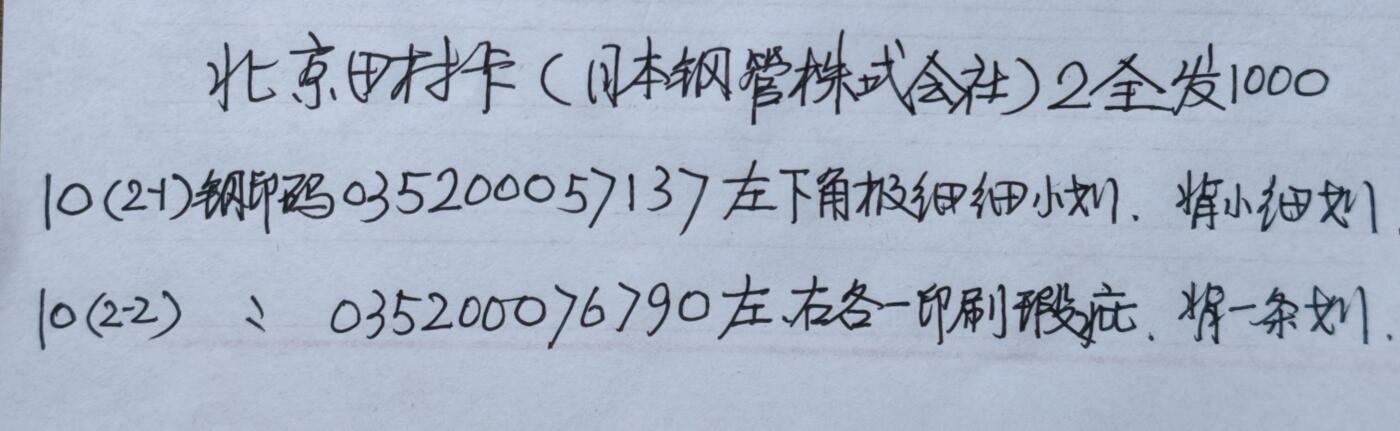 北京田村卡（日本钢管株式会社）2全发1000
10(2-1)钢印码035200057137左下角极细细小划．背小细划．
10(2-2) 〃 035200076790左、右各一印刷瑕疵．背一条划．